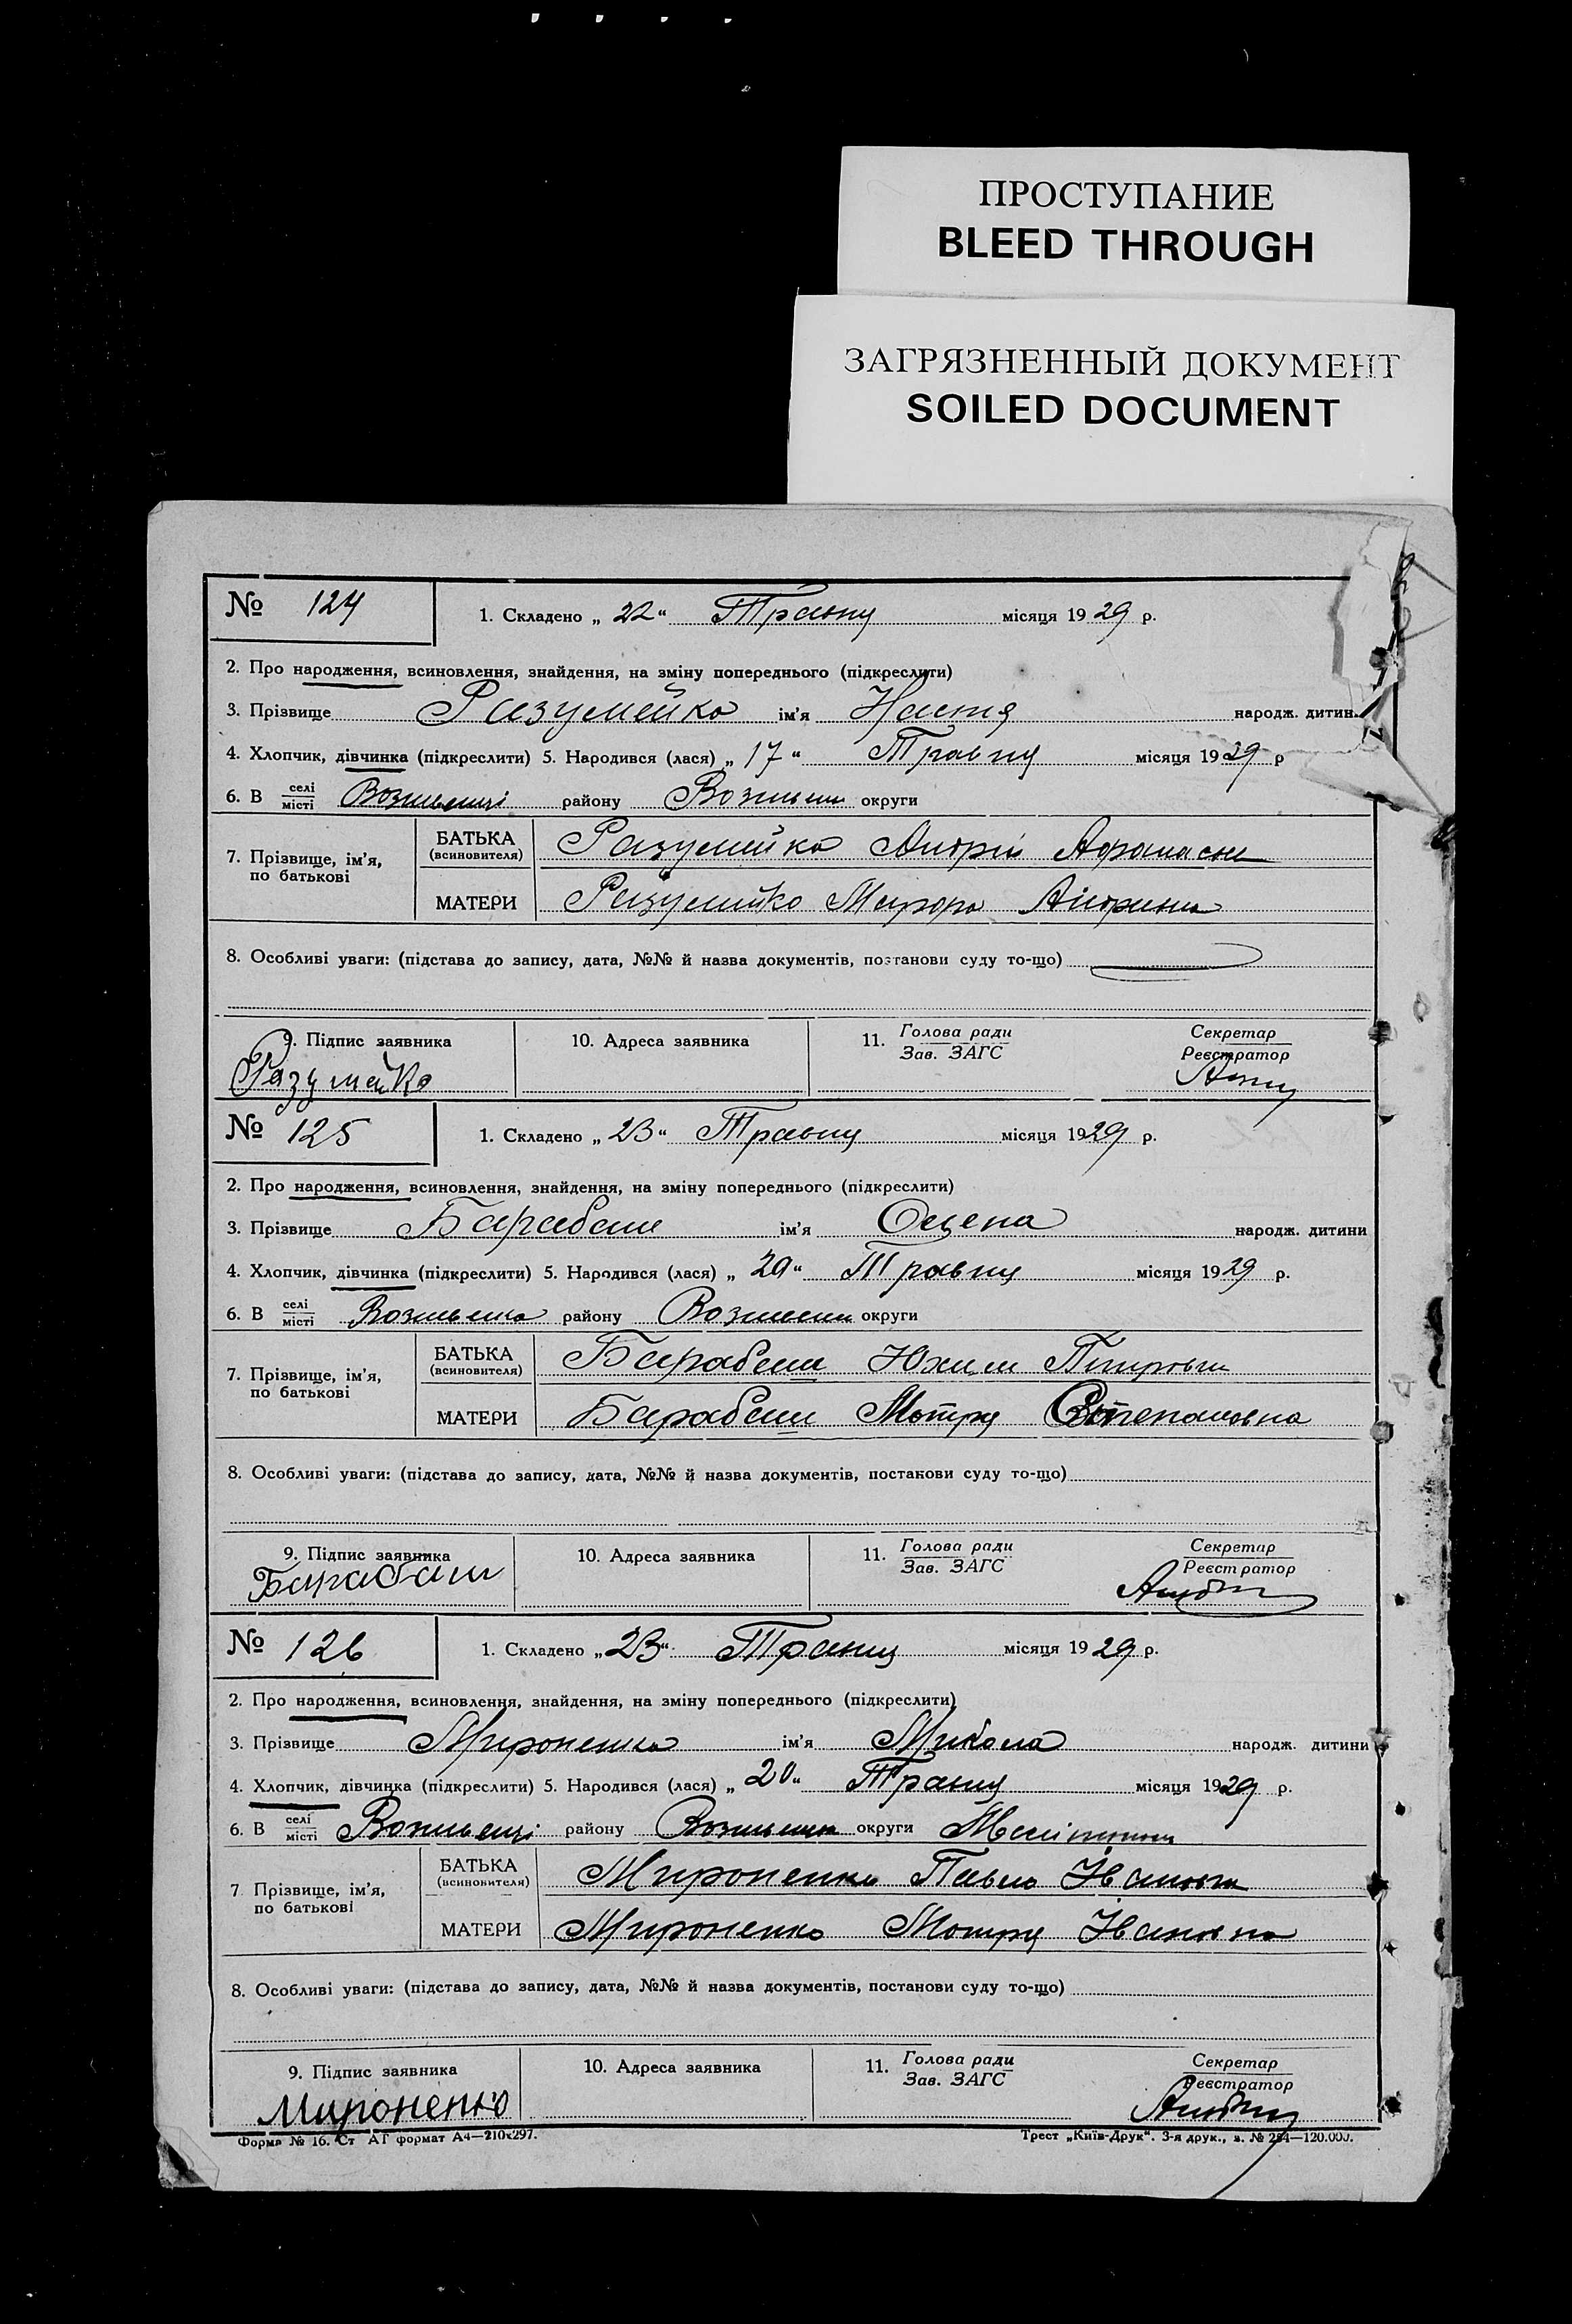 ПРОСТУПАНИЕ
BLEED THROUGH
ЗАГРЯЗНЕННЫЙ ДОКУМЕНТ
SOILED DOCUMENT
№ 124 1. Складено „ 22 “ Травня місяця 19 29 р.
2. Про народження, всиновлення, знайдення, на зміну попереднього (підкреслити)
3. Прізвище Разумейко ім'я Настя народж. дитин
4. Хлопчик, дівчинка (підкреслити) 5. Народився (лася) „ 17 “ Травня місяця 19 29 р
6. В селі місті району округи
БАТЬКА (всиновителя) Разумейко Андрій
7. Прізвище, ім'я, по батькові
МАТЕРИ Разумейко
8. Особливі уваги: (підстава до запису, дата, №№ й назва документів, постанови суду то-що)
9. Підпис заявника 10. Адреса заявника 11. Голова ради Зав. ЗАГС Секретар Реєстратор
Разумейко
№ 125 1. Складено „ 23 “ Травня місяця 19 29 р.
2. Про народження, всиновлення, знайдення, на зміну попереднього (підкреслити)
3. Прізвище Барабаш ім'я народж. дитини
4. Хлопчик, дівчинка (підкреслити) 5. Народився (лася) „ 20 “ Травня місяця 19 29 р.
6. В селі місті району округи
БАТЬКА (всиновителя) Барабаш Юхим Петрович
7. Прізвище, ім'я, по батькові
МАТЕРИ Барабаш Мотря Степановна
8. Особливі уваги: (підстава до запису, дата, №№ й назва документів, постанови суду то-що)
9. Підпис заявника 10. Адреса заявника 11. Голова ради Зав. ЗАГС Секретар Реєстратор
Барабаш
№ 126 1. Складено „ 23 “ Травня місяця 19 29 р.
2. Про народження, всиновлення, знайдення, на зміну попереднього (підкреслити)
3. Прізвище Мироненко ім'я Микола народж. дитини
4. Хлопчик, дівчинка (підкреслити) 5. Народився (лася) „ 20 “ Травня місяця 19 29 р.
6. В селі місті району округи
БАТЬКА (всиновителя) Мироненко Павло Іванович
7 Прізвище, ім'я, по батькові
МАТЕРИ Мироненко Мотря Івановна
8. Особливі уваги: (підстава до запису, дата, №№ й назва документів, постанови суду то-що)
9. Підпис заявника 10. Адреса заявника 11. Голова ради Зав. ЗАГС Секретар Реєстратор
Мироненко
Форма № 16. Ст АГ формат А4—210х297. Трест „Київ-Друк“. 3-я друк., з. № 284—120.000.